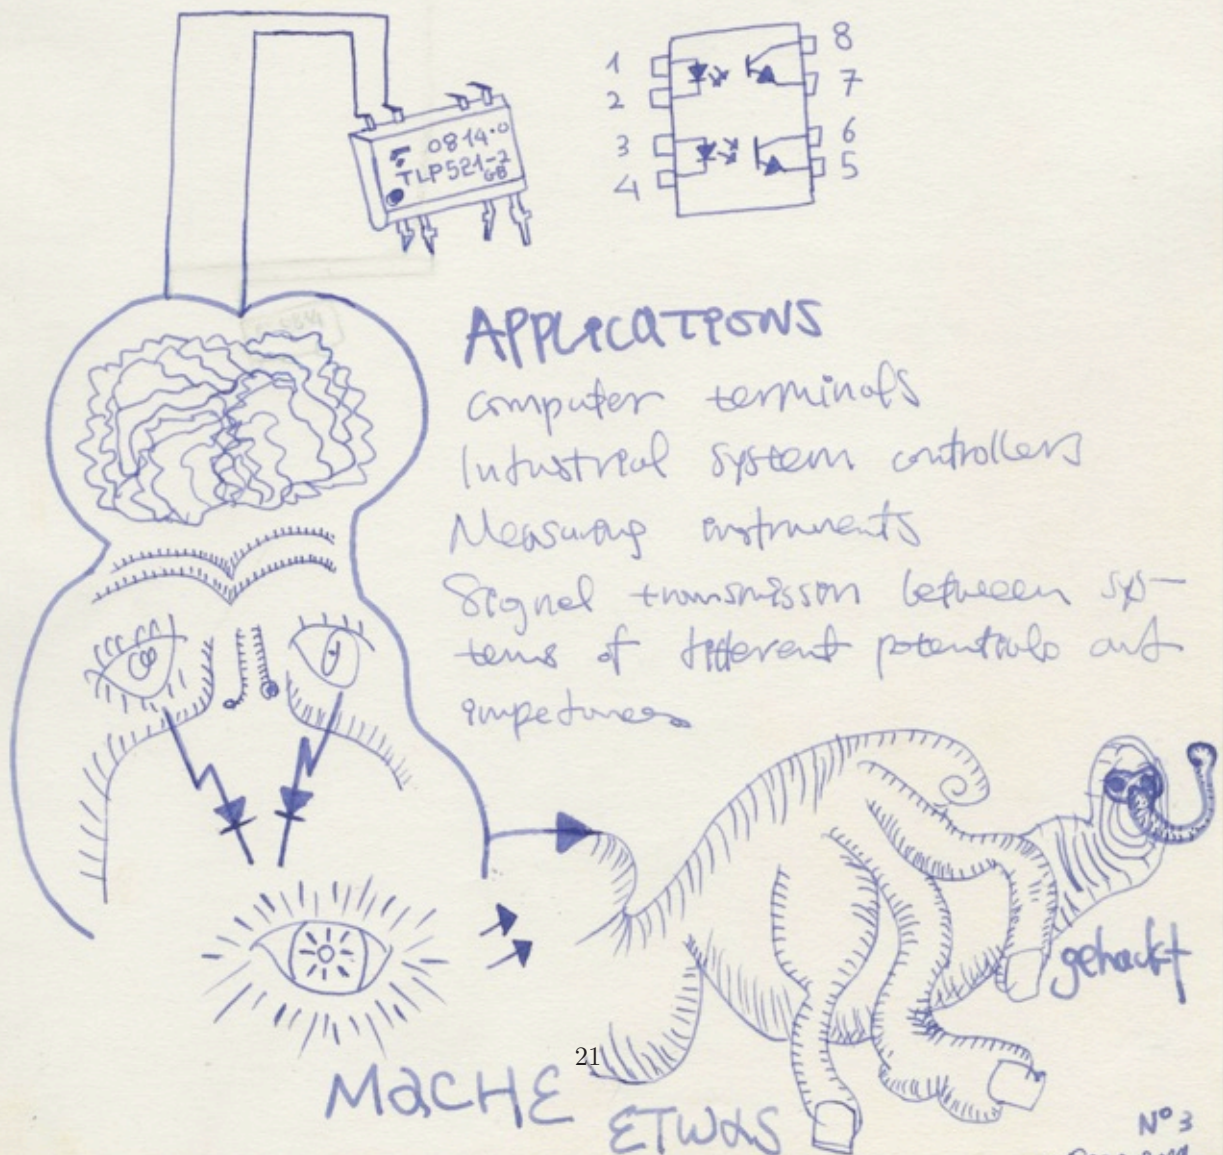 0814.0
TLP521-2
GB
1
2
3
4
8
7
6
5
APPLICATIONS
computer terminals
Industrial system controllers
Measuring instruments
Signal transmission between sys-
tems of different potentials and
impedances
gehackt
21
MACHE
ETWAS
Nº 3